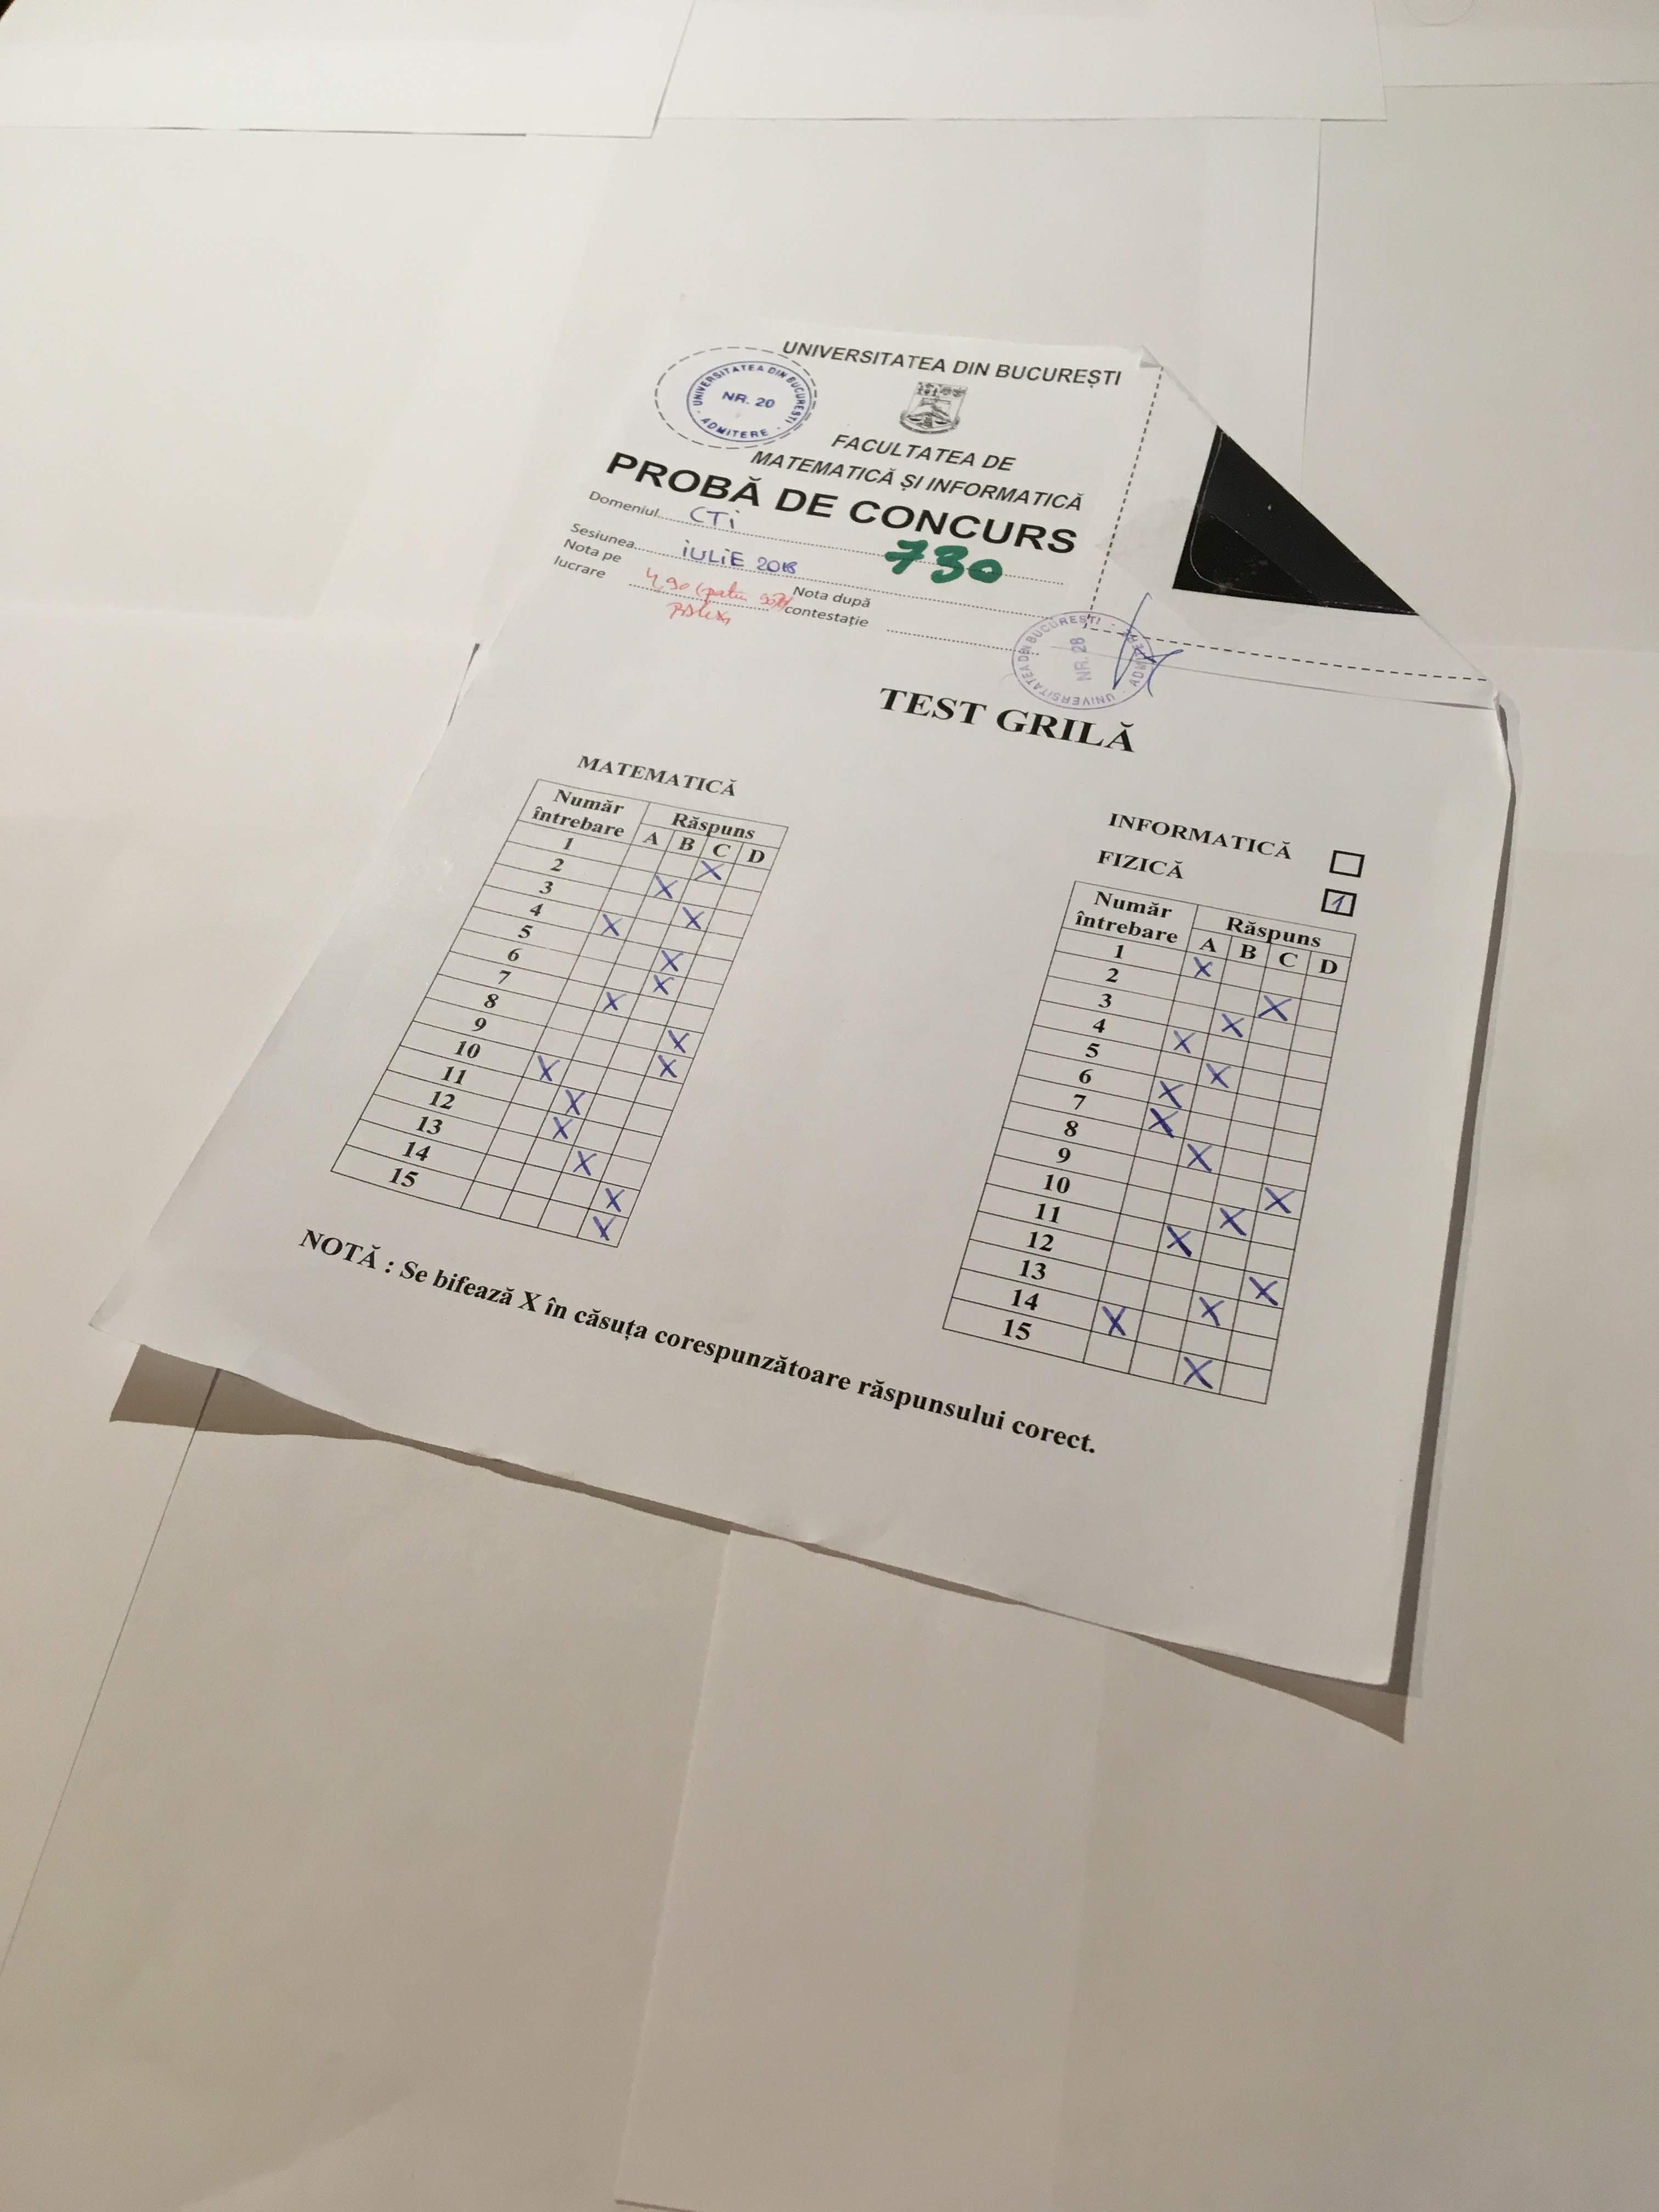 UNIVERSITATEA DIN BUCUREȘTI
UNIVERSITATEA DIN BUCURESTI
NR. 20
ADMITERE
FACULTATEA DE
MATEMATICĂ ȘI INFORMATICĂ
PROBĂ DE CONCURS
Domeniul CTi
730
Sesiunea iULiE 2018
Nota pe
lucrare
4,90 (patru
Nota după
contestație
UNIVERSITATEA DIN BUCURESTI
NR. 28
TEST GRILĂ
MATEMATICĂ
Număr
întrebare
Răspuns
A B C D
1 X
2 X
3 X
4 X
5 X
6 X
7 X
8 X
9 X
10 X
11 X
12 X
13 X
14 X
15 X
INFORMATICĂ
FIZICĂ 1
Număr
întrebare
Răspuns
A B C D
1 X
2 X
3 X
4 X
5 X
6 X
7 X
8 X
9 X
10 X
11 X
12 X
13 X
14 X
15 X
NOTĂ : Se bifează X în căsuța corespunzătoare răspunsului corect.